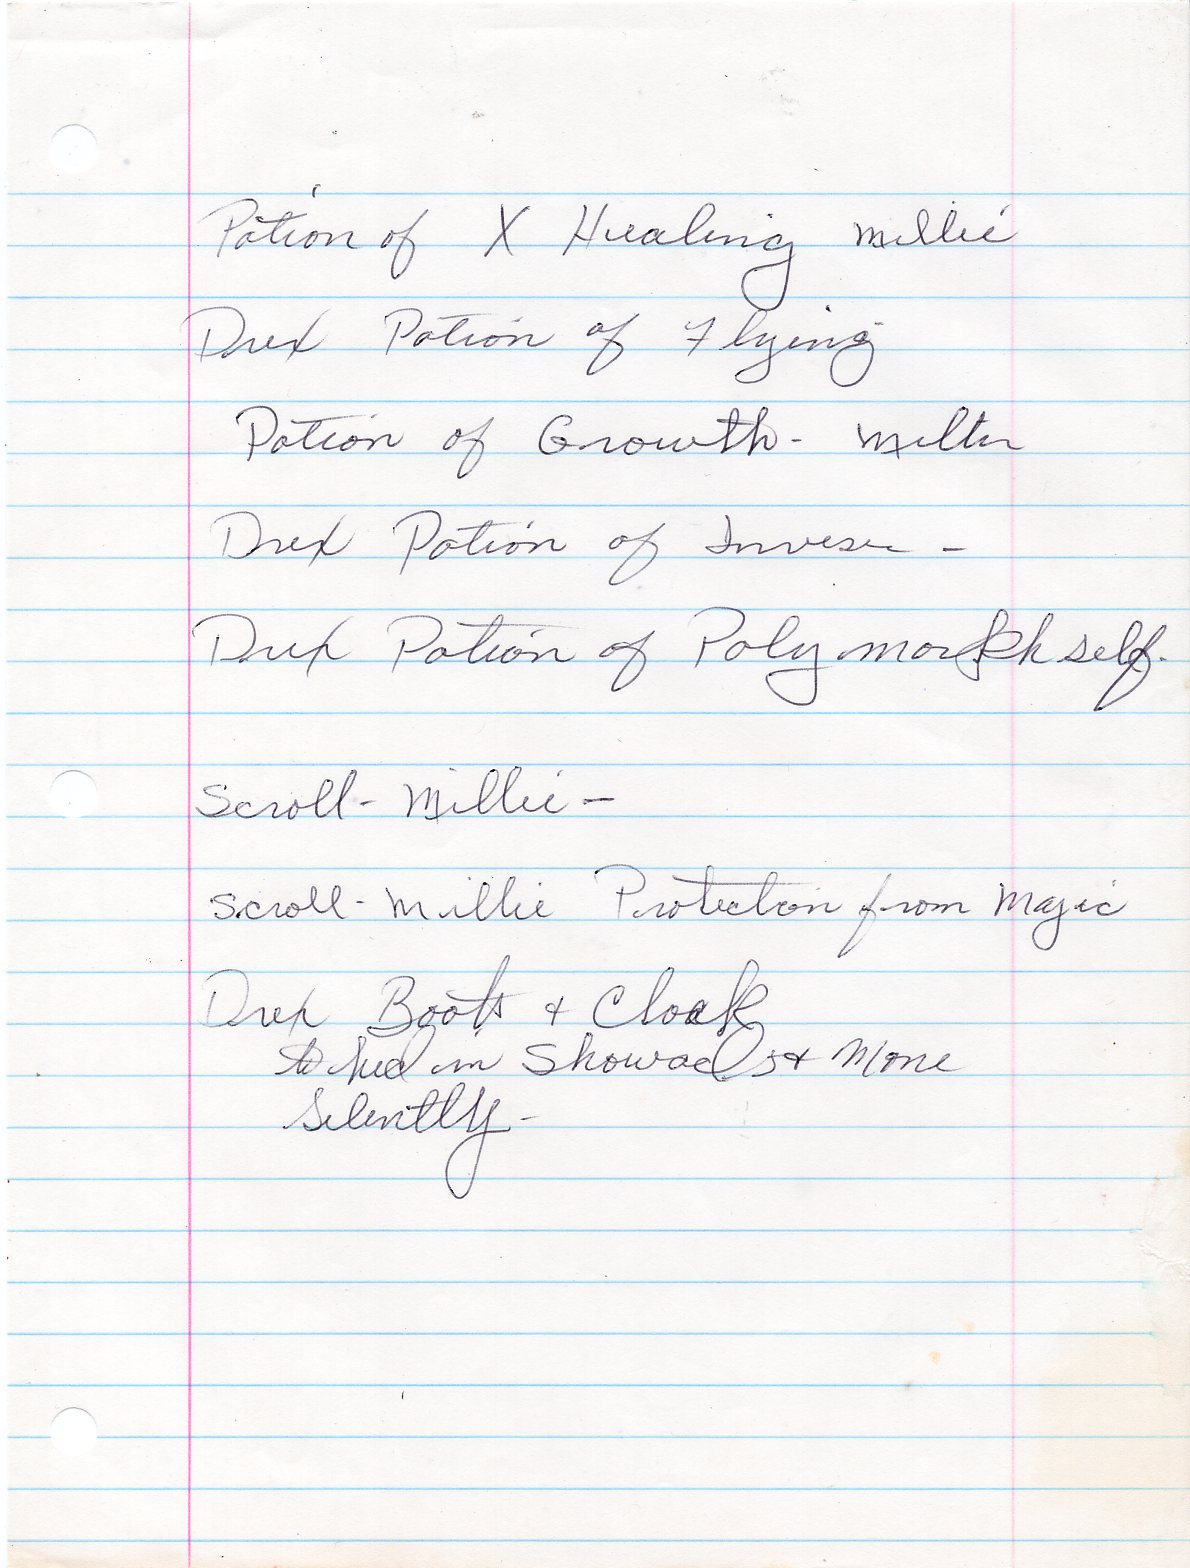 Potion of X Healing Millie
Drex Potion of Flying
Potion of Growth - Milter
Drex Potion of Invese -
Drex Potion of Polymorph self.
Scroll - Millie -
Scroll - Millie Protection from Magic
Drex Boots + Cloak
to hid in Showads + Move
Silently -